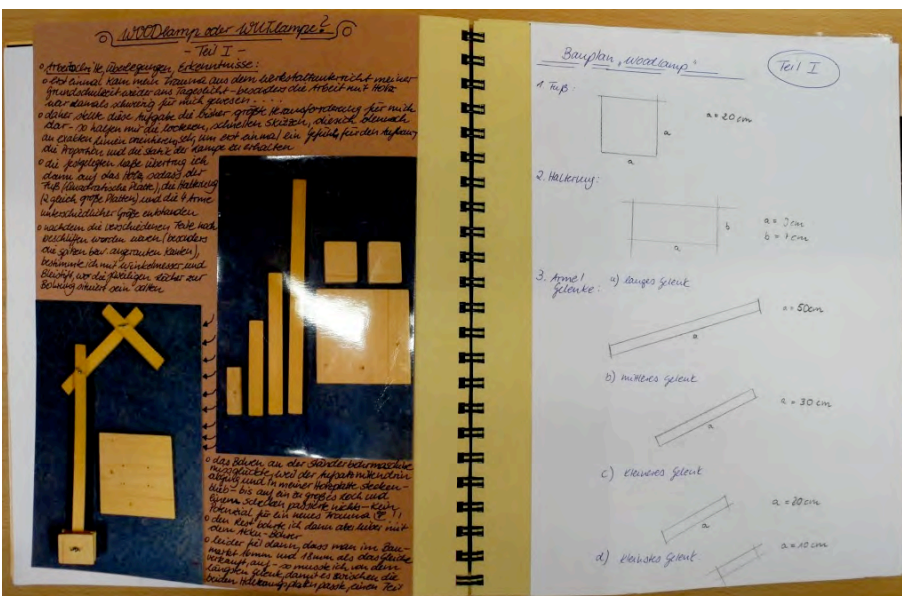 WOODlamp oder WUTlampe?
- Teil I -
o Arbeitsschritte, Überlegungen, Erkenntnisse:
o erst einmal kam mein Trauma aus dem Werkstattunterricht meiner
Grundschulzeit wieder ans Tageslicht - besonders die Arbeit mit Holz
war damals schwierig für mich gewesen....
o daher stellte diese Aufgabe die bisher größte Herausforderung für mich
dar - so halfen mir die lockeren, schnellen Skizzen, die sich dennoch
an exakten Linien orientieren, um erst einmal ein Gefühl für den Aufbau,
die Proportion und die Statik der Lampe zu erhalten
o die festgelegten Maße übertrug ich
dann auf das Holz, sodass der
Fuß (quadratische Platte), die Halterung
(2 gleich große Platten) und die 4 Arme
unterschiedlicher Größe entstanden
o nachdem die verschiedenen Teile noch
geschliffen worden waren (besonders
die bzw. angerauten Kanten),
bestimmte ich mit Winkelmesser und
Bleistift, wo die jeweiligen Löcher zur
Bohrung situiert sein sollten
o das Bohren an der Ständerbohrmaschine
missglückte, weil der Aufsatz mittendrin
abging und in meiner Holzplatte stecken-
blieb - bis auf ein zu großes Loch und
einem Schrecken passierte nichts - kein
Potential für ein neues Trauma
o den Rest bohrte ich dann also lieber mit
dem Akku-Bohrer
o leider fiel dann, dass man im Bau-
markt 16mm und 18mm als das gleiche
verkauft, auf - so musste ich von dem
längsten Gelenk, damit es zwischen die
beiden Halterungsplatten passte, einen Teil
Bauplan „Woodlamp"
Teil I
1. Fuß:
a
a
a = 20 cm
2. Halterung:
a
b
a = 9cm
b = 7cm
3. Arme/
Gelenke:
a) langes Gelenk
a
a = 50cm
b) mittleres Gelenk
a
a = 30 cm
c) kleineres Gelenk
a
a = 20cm
d) kleinstes Gelenk
a = 10 cm